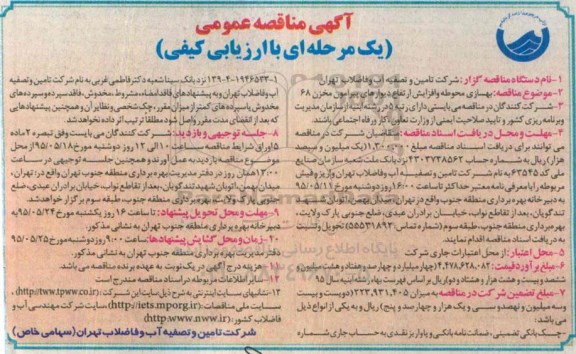 آگهی مناقصه عمومی
(یک مرحله ای با ارزیابی کیفی)
۱-نام دستگاه مناقصه گزار: شرکت تامین و تصفیه آب و فاضلاب تهران
۲-موضوع مناقصه: بهسازی محوطه و افزایش ارتفاع دیوارهای پیرامون مخزن ۶۸
۳-شرکت کنندگان در مناقصه می بایستی دارای رتبه ۵ در رشته ابنیه از سازمان مدیریت
و برنامه ریزی کشور و تایید صلاحیت ایمنی از وزارت تعاون، کار و رفاه اجتماعی باشند.
۴-مهلت و محل دریافت اسناد مناقصه: متقاضیان شرکت در مناقصه
می توانند برای دریافت اسناد مناقصه مبلغ (یک میلیون و سیصد
هزار) ریال به شماره حساب نزد بانک ملت شعبه سازمان صنایع
ملی کد ۶۳۵۴۵ به نام شرکت تامین و تصفیه آب و فاضلاب تهران واریز و فیش
مربوطه را با معرفی نامه معتبر حداکثر تا ساعت ۱۶:۰۰ روز دوشنبه مورخ ۹۵/۰۵/۱۱
به دبیرخانه بهره برداری منطقه جنوب واقع در تهران
تندگویان، بعد از تقاطع نواب، خیابان برادران عیدی، ضلع جنوبی پارک ولایت،
بهره برداری منطقه جنوب، طبقه سوم (شماره تماس: ۵۵۵۳۱۸۹۳) تحویل و نسبت
به دریافت اسناد اقدام نمایند.
۵-محل اعتبار: از محل اعتبارات جاری شرکت
۶-مبلغ برآورد قیمت: ۴,۴۷۸,۶۲۸,۰۸۲ (چهار میلیارد و چهارصد و هفتاد و هشت میلیون و
ششصد و بیست و هشت هزار و هشتاد و دو) ریال بر اساس فهرست بها رشته ابنیه سال ۹۵
۷-مبلغ تضمین شرکت در مناقصه: به میزان ۲۲۳,۹۳۱,۴۰۵ (دویست و بیست
و سه میلیون و نهصد و سی و یک هزار و چهارصد و پنج) ریال و به یکی از انواع ذیل
می باشد:
-چک بانکی تضمینی، ضمانت نامه بانکی و یا واریز نقدی به حساب جاری شماره
۱۳۹-۴-۱۹۴۶۵۳۳-۱ نزد بانک سینا شعبه دکتر فاطمی غربی به نام شرکت تامین و تصفیه
آب و فاضلاب تهران و به پیشنهادهای فاقد امضاء، مشروط، مخدوش، فاقد سپرده و سپرده های
مخدوش یا سپرده های کمتر از میزان مقرر، چک شخصی و نظایر آن و همچنین پیشنهادهایی
که بعد از انقضای مدت مقرر واصل شود مطلقا ترتیب اثر داده نخواهد شد.
۸-جلسه توجیهی و بازدید: شرکت کنندگان می بایست وفق تبصره ۲ ماده
۵ اوراق شرایط مناقصه ساعت ۱۰ الی ۱۲ روز دوشنبه مورخ ۹۵/۰۵/۱۸ از محل
موضوع مناقصه بازدید به عمل آورند و همچنین جلسه توجیهی در ساعت
۱۳:۰۰ همان روز در دفتر مدیریت بهره برداری منطقه جنوب تهران واقع در: تهران،
میدان بهمن، اتوبان شهید تندگویان، بعد از تقاطع نواب، خیابان برادران عیدی، ضلع
جنوبی بهره برداری منطقه جنوب، طبقه سوم برگزار خواهد شد.
۹-مهلت و محل تحویل پیشنهاد: تا ساعت ۱۶ روز یکشنبه مورخ ۹۵/۰۵/۲۴
دبیرخانه بهره برداری منطقه جنوب تهران به نشانی مذکور.
۱۰-زمان و محل گشایش پیشنهادها: ساعت ۹:۰۰ روز دوشنبه مورخ ۹۵/۰۵/۲۵
دفتر مدیریت بهره برداری منطقه جنوب تهران به نشانی مذکور.
۱۱-هزینه درج آگهی در یک نوبت به عهده برنده مناقصه می باشد.
۱۲-سایر اطلاعات مربوطه در اسناد مناقصه مندرج است
۱۳-نشانی های سایت اینترنتی به شرح ذیل: سایت این شرکت (http://www.tpww.co.ir)،
سایت ملی مناقصات (http://iets.mporg.ir) سایت شرکت مهندسی آب و
فاضلاب کشور: (http://www.nww.ir)
شرکت تامین و تصفیه آب و فاضلاب تهران (سهامی خاص)